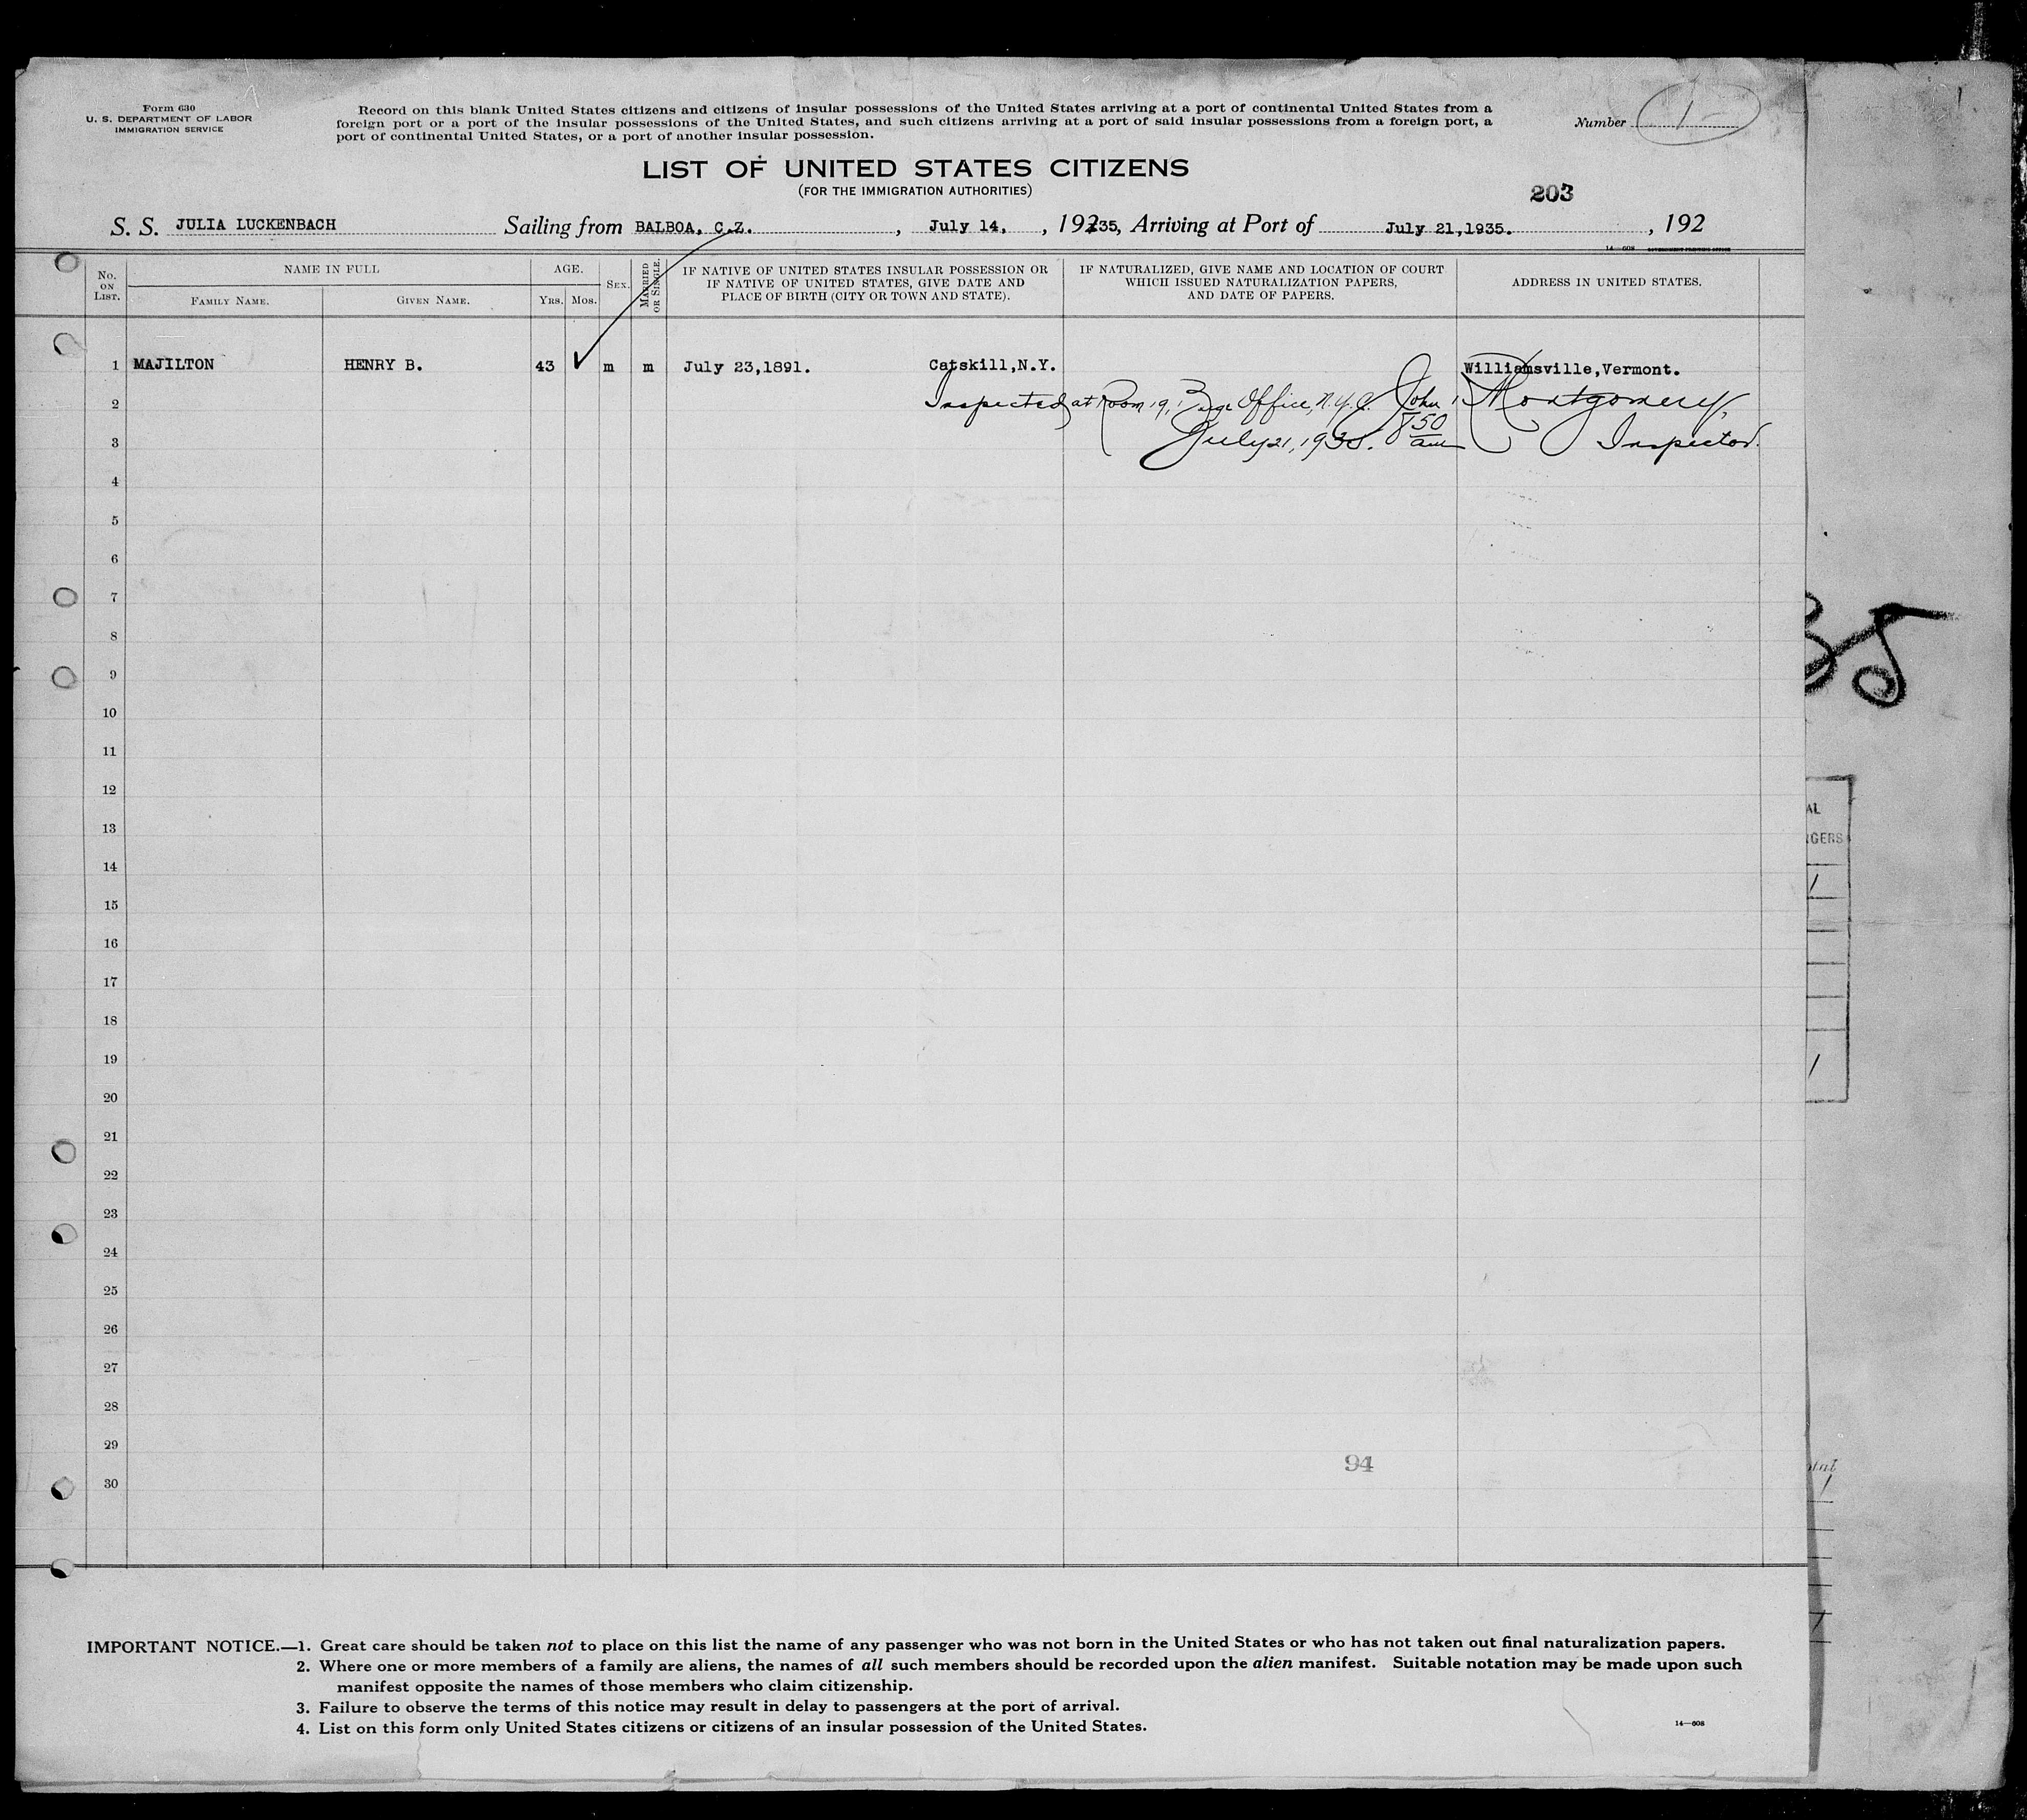 Form 630
U. S. DEPARTMENT OF LABOR
IMMIGRATION SERVICE
Record on this blank United States citizens and citizens of insular possessions of the United States arriving at a port of continental United States from a
foreign port or a port of the insular possessions of the United States, and such citizens arriving at a port of said insular possessions from a foreign port, a
port of continental United States, or a port of another insular possession.
Number 1-
LIST OF UNITED STATES CITIZENS
(FOR THE IMMIGRATION AUTHORITIES)
203
S. S. JULIA LUCKENBACH Sailing from BALBOA, C.Z. , July 14, , 19235, Arriving at Port of July 21,1935. , 192
14—608 GOVERNMENT PRINTING OFFICE
No. ON LIST.
NAME IN FULL
FAMILY NAME.
GIVEN NAME.
AGE.
YRS. MOS.
SEX.
MARRIED OR SINGLE.
IF NATIVE OF UNITED STATES INSULAR POSSESSION OR
IF NATIVE OF UNITED STATES, GIVE DATE AND
PLACE OF BIRTH (CITY OR TOWN AND STATE).
IF NATURALIZED, GIVE NAME AND LOCATION OF COURT
WHICH ISSUED NATURALIZATION PAPERS,
AND DATE OF PAPERS.
ADDRESS IN UNITED STATES.
1 MAJILTON HENRY B. 43 ✓ m m July 23,1891. Catskill,N.Y. Williamsville,Vermont.
2 Inspected at Room 19, Barge Office, N.Y.C. John Montgomery,
3 July 21, 1935. 8 50 am Inspector.
4
5
6
7
8
9
10
11
12
13
14
15
16
17
18
19
20
21
22
23
24
25
26
27
28
29
94
30
IMPORTANT NOTICE.—1. Great care should be taken not to place on this list the name of any passenger who was not born in the United States or who has not taken out final naturalization papers.
2. Where one or more members of a family are aliens, the names of all such members should be recorded upon the alien manifest. Suitable notation may be made upon such
manifest opposite the names of those members who claim citizenship.
3. Failure to observe the terms of this notice may result in delay to passengers at the port of arrival.
4. List on this form only United States citizens or citizens of an insular possession of the United States.
14—608
35
AL
NGERS
1
1